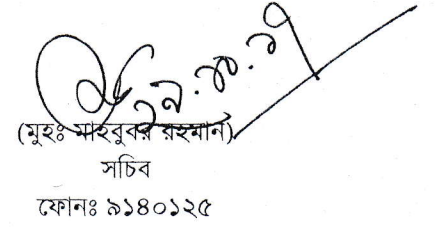 ২৯.১০.১৭
(মুহঃ মাহবুবর রহমান)
সচিব
ফোনঃ ৯১৪০১২৫